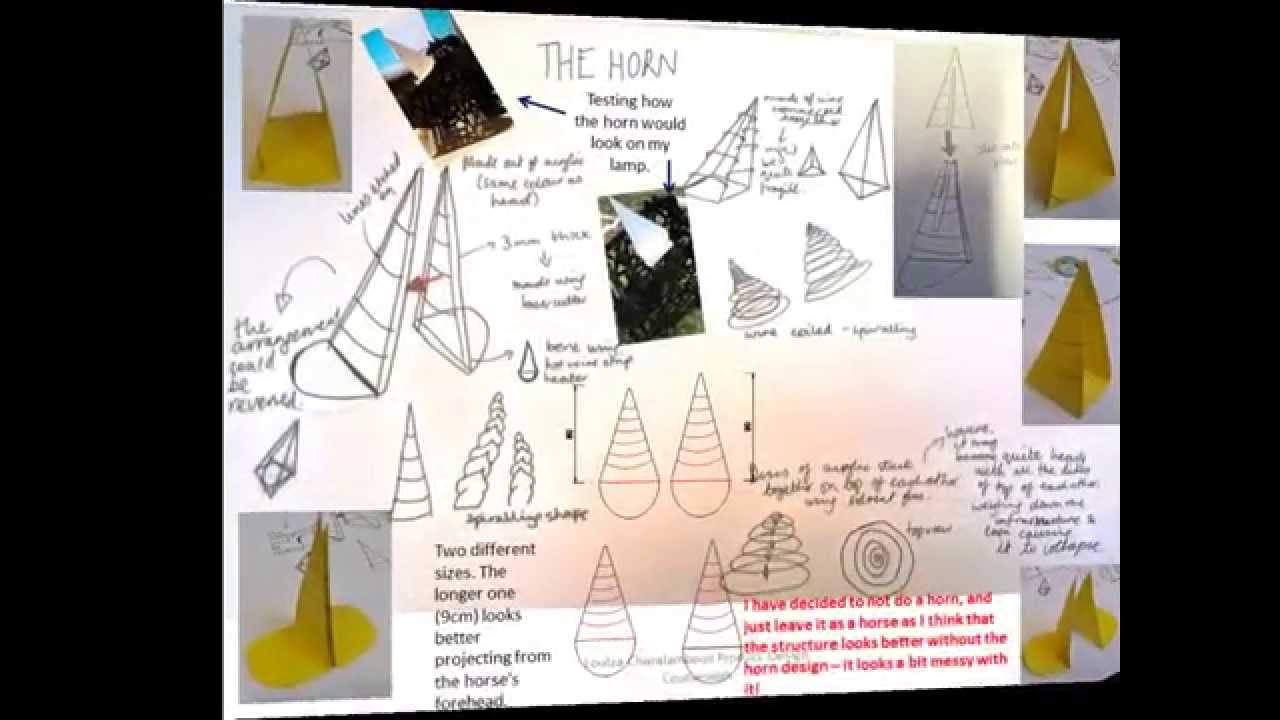 THE HORN
Testing how
the horn would
look on my
lamp.
lines etched
on
Made out of acrylic
(same colour as
head)
3mm thick
made using
laser cutter
made of wire
might
be
quite
fragile
wire coiled - spiralling
the
arrangement
could
be
reversed.
bent using
hot wire strip
heater
spiralling shape
Two different
sizes. The
longer one
(9cm) looks
better
projecting from
the horse's
forehead.
of acrylic stuck
together on top of eachother
using
top view
however,
it may
quite heavy
with all the
of top of eachother.
weighing down the
infrastructure &
causing
it to collapse
Louiza Charalambous Product Design
Coursework
I have decided to not do a horn, and
just leave it as a horse as I think that
the structure looks better without the
horn design – it looks a bit messy with
it!